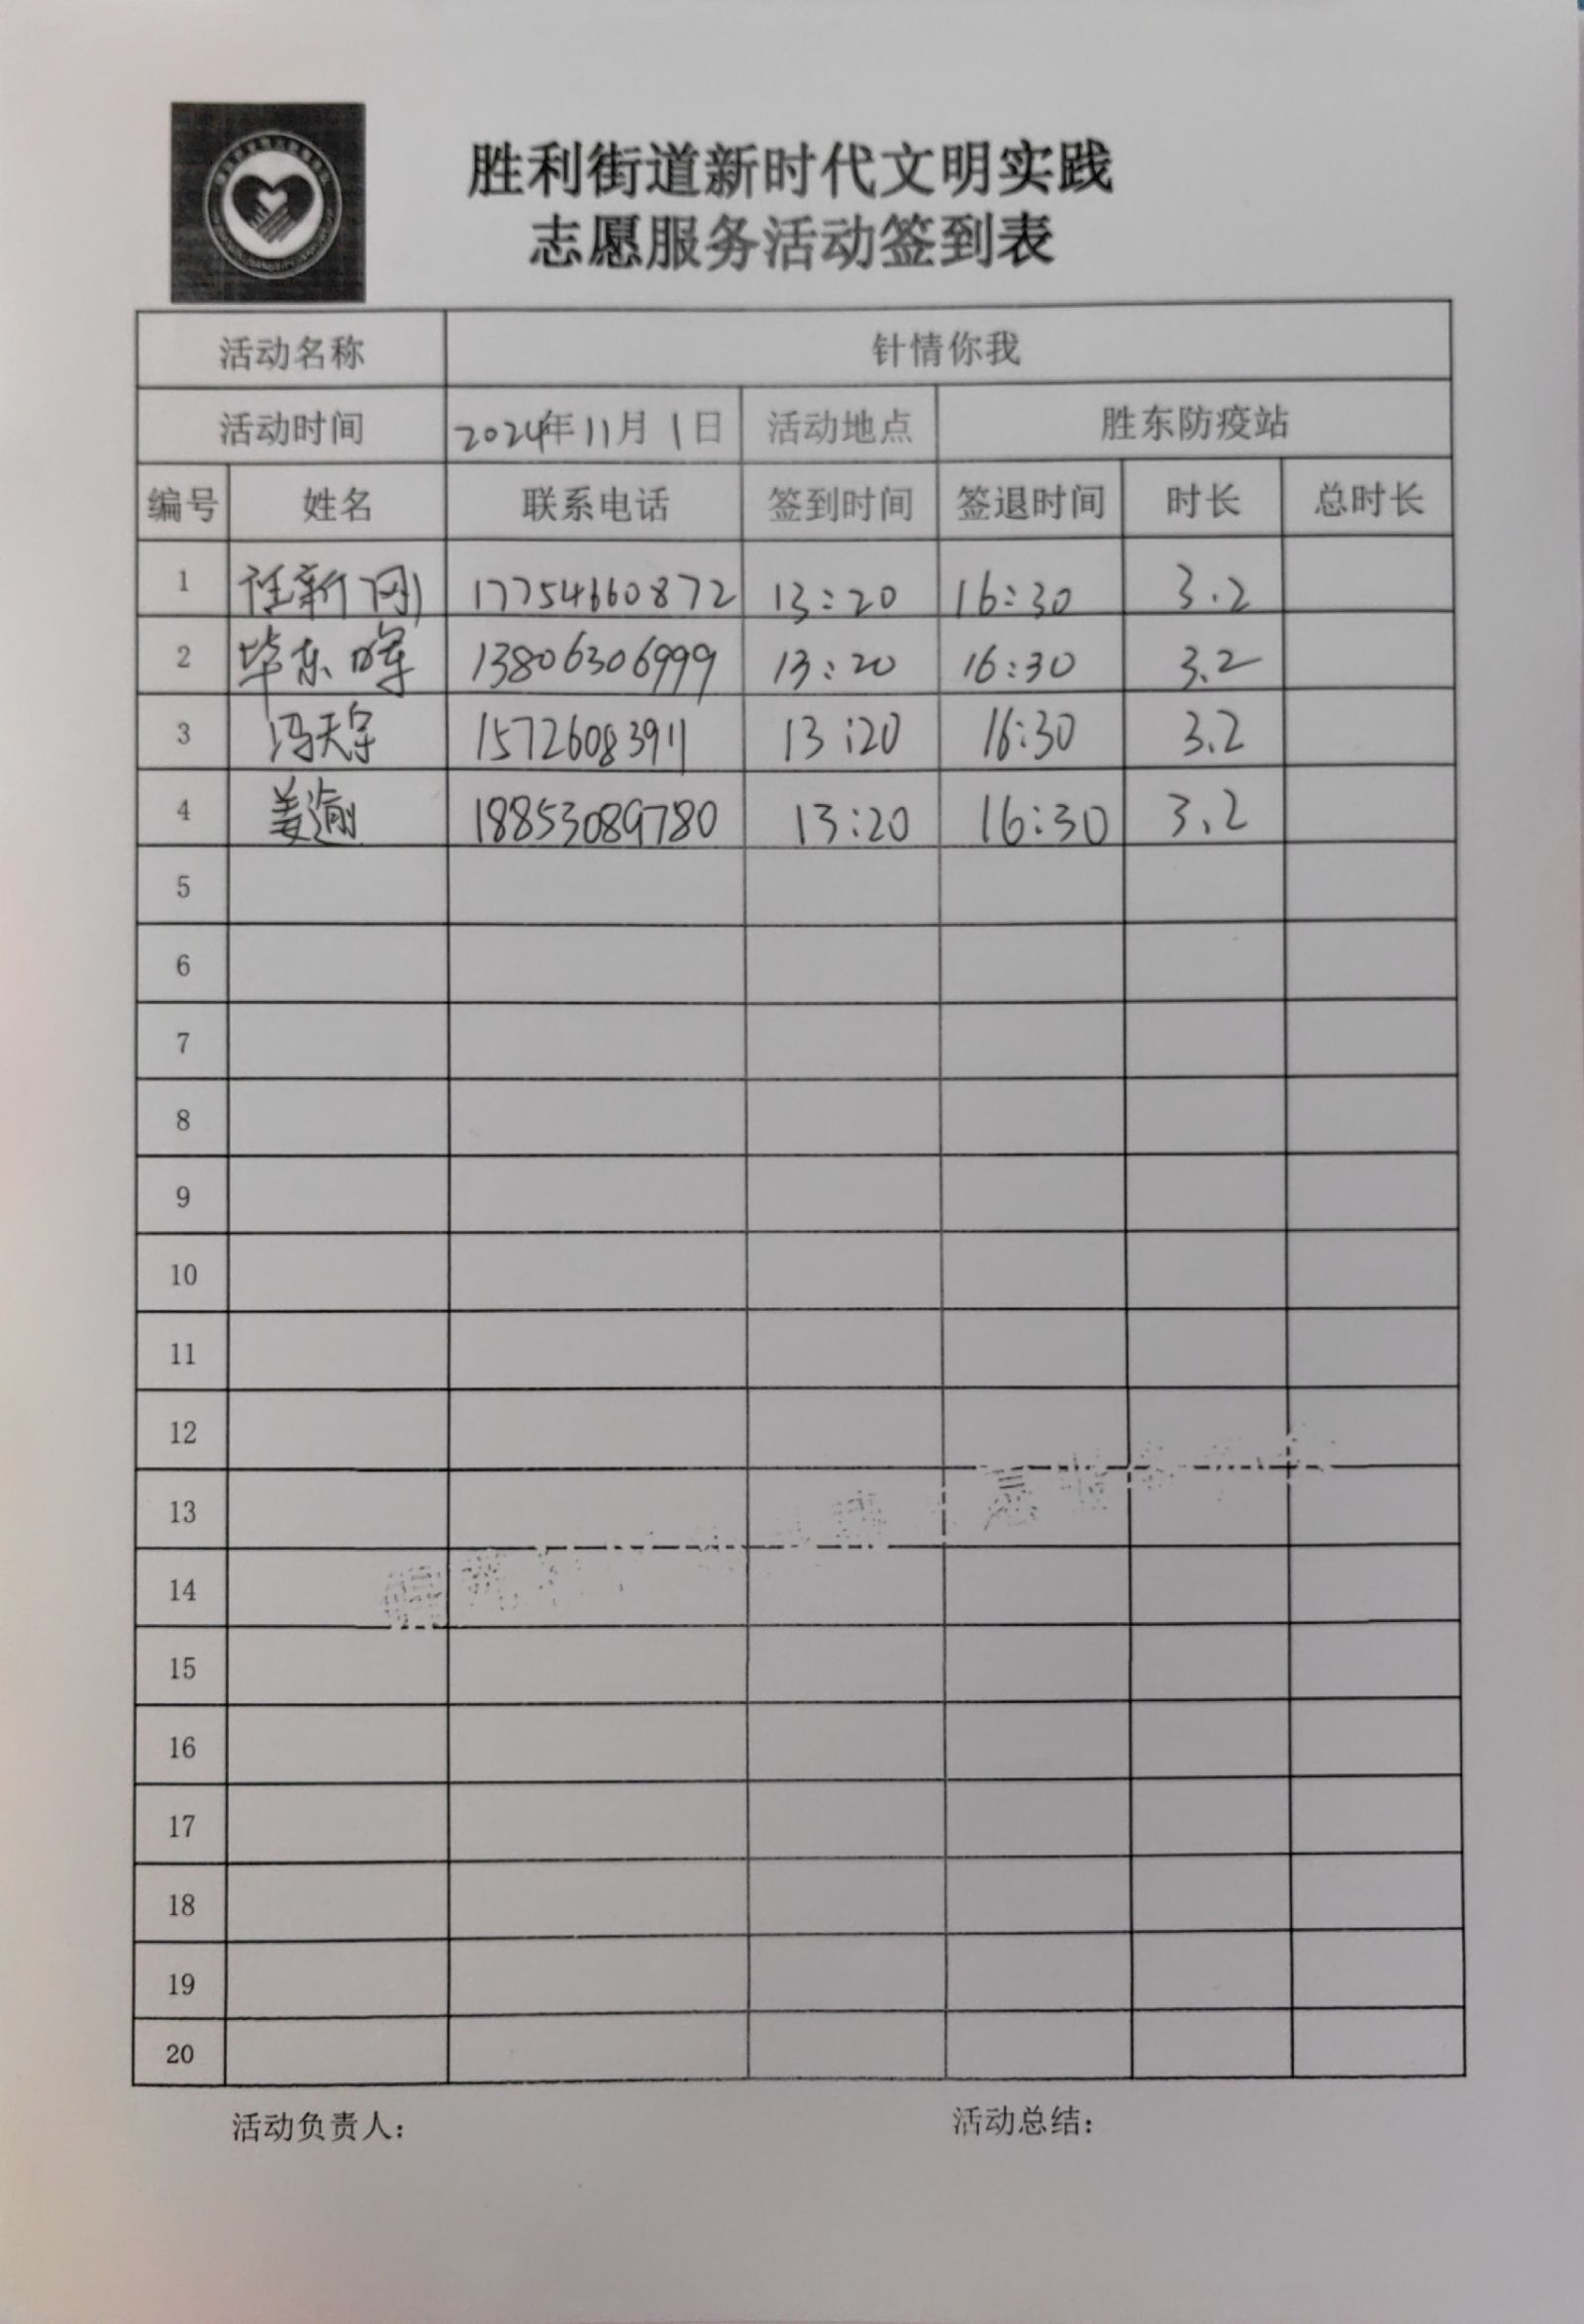 胜利街道新时代文明实践
志愿服务活动签到表
活动名称 针情你我
活动时间 2024年11月1日 活动地点 胜东防疫站
编号 姓名 联系电话 签到时间 签退时间 时长 总时长
1 任新刚 17754660872 13:20 16:30 3.2
2 毕东晖 13806306999 13:20 16:30 3.2
3 冯天宇 15726083911 13:20 16:30 3.2
4 姜瑜 18853089780 13:20 16:30 3.2
5
6
7
8
9
10
11
12
13
14
15
16
17
18
19
20
活动负责人: 活动总结: